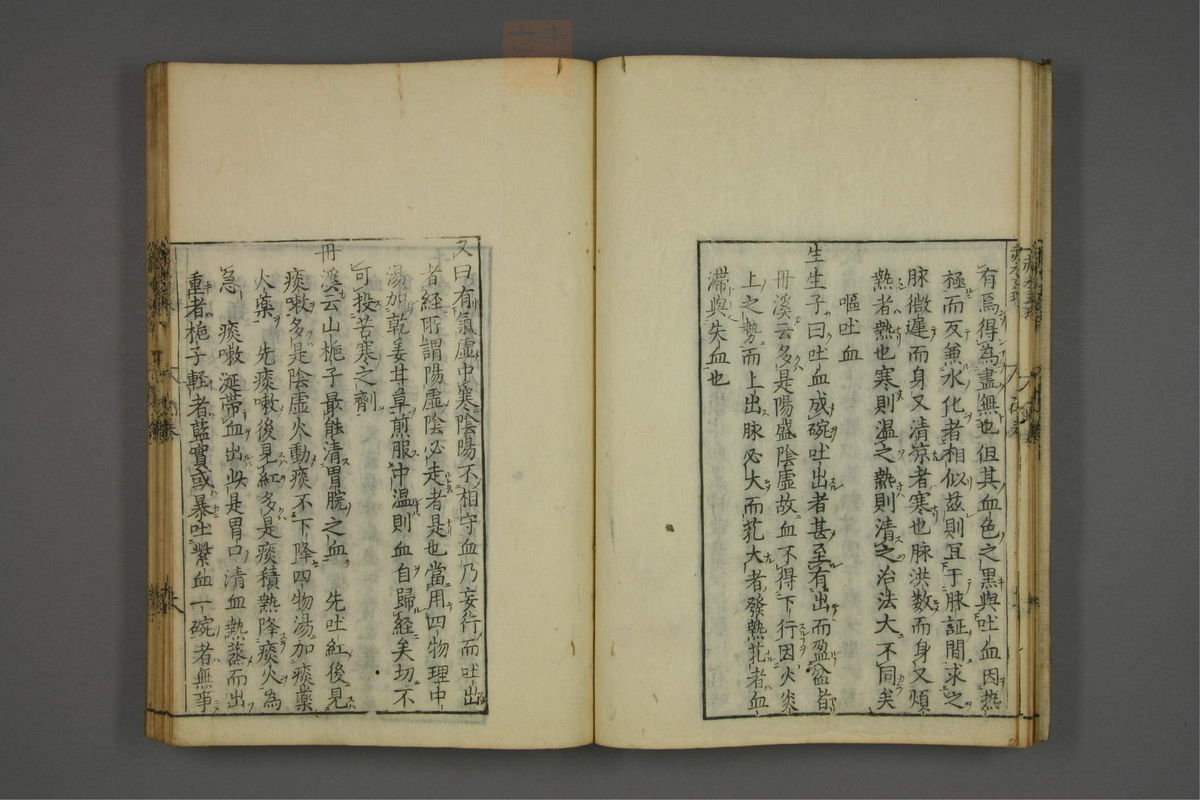 有焉得為盡無也但其血色之黒與吐血因热
極而反兼水化者相似茲則冝于脉証間求之
脉微遲而身又清涼者寒也脉洪数而身又煩
熱者熱也寒則温之熱則清之治法大不同矣
嘔吐血
生生子曰吐血成碗吐出者甚至有出而盈盆皆
丹溪云多是陽盛陰虚故血不得下行因火炎
上之勢而上出脉必大而芤大者發熱芤者血
滞與失血也
又曰有氣虚中寒陰陽不相守血乃妄行而吐出
者経所謂陽虚陰必走者是也當用四物理中
湯加乾姜甘草煎服中温則血自歸経矣切不
可投苦寒之劑
丹溪云山梔子最能清胃脘之血 先吐紅後見
痰嗽多是陰虚火動痰不下降四物湯加痰藥
火藥 先痰嗽後見紅多是痰積熱降痰火為
急 痰嗽涎帶血出此是胃口清血熱蒸而出
重者梔子軽者藍實或暴吐紫血一碗者無事